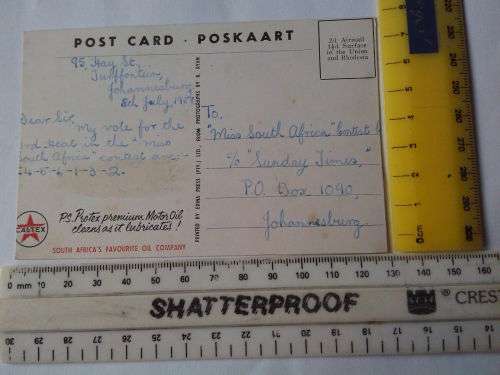 POST CARD · POSKAART
2d Airmail
1½d Surface
in the Union
and Rhodesia
95 Hay St,
Turffontein,
Johannesburg
8th July
Dear Sir,
My vote for the
heat in the "Miss
South Africa" contest are:-
4-0-6-1-3-2-
To,
Miss South Africa "Contest
c/o "Sunday Times,"
P.O. Box 1090,
Johannesburg
PRINTED BY EDMA PRESS (PTY.) LTD., FROM PHOTOGRAPHS BY R. RYAN
P.S. Protex premium Motor Oil
cleans as it lubricates!
CALTEX
SOUTH AFRICA'S FAVOURITE OIL COMPANY
0 mm 10 20 30 40 50 60 70 80 90 100 110 120 130 140 150 160
SHATTERPROOF
® CREST
30 29 28 27 26 25 24 23 22 21 20 19 18 17 16 15 14
0cm